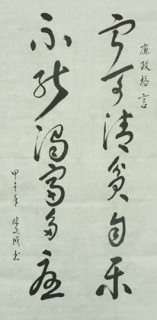 廉政格言
宁可清贫自乐
不能浊富多危
甲午年